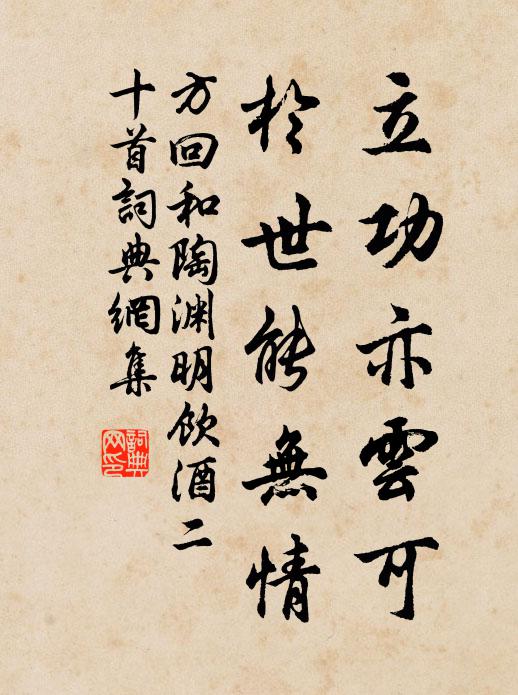 立功亦雲可
於世能無情
方回和陶渊明飲酒二
十首詞典網集
詞典网印